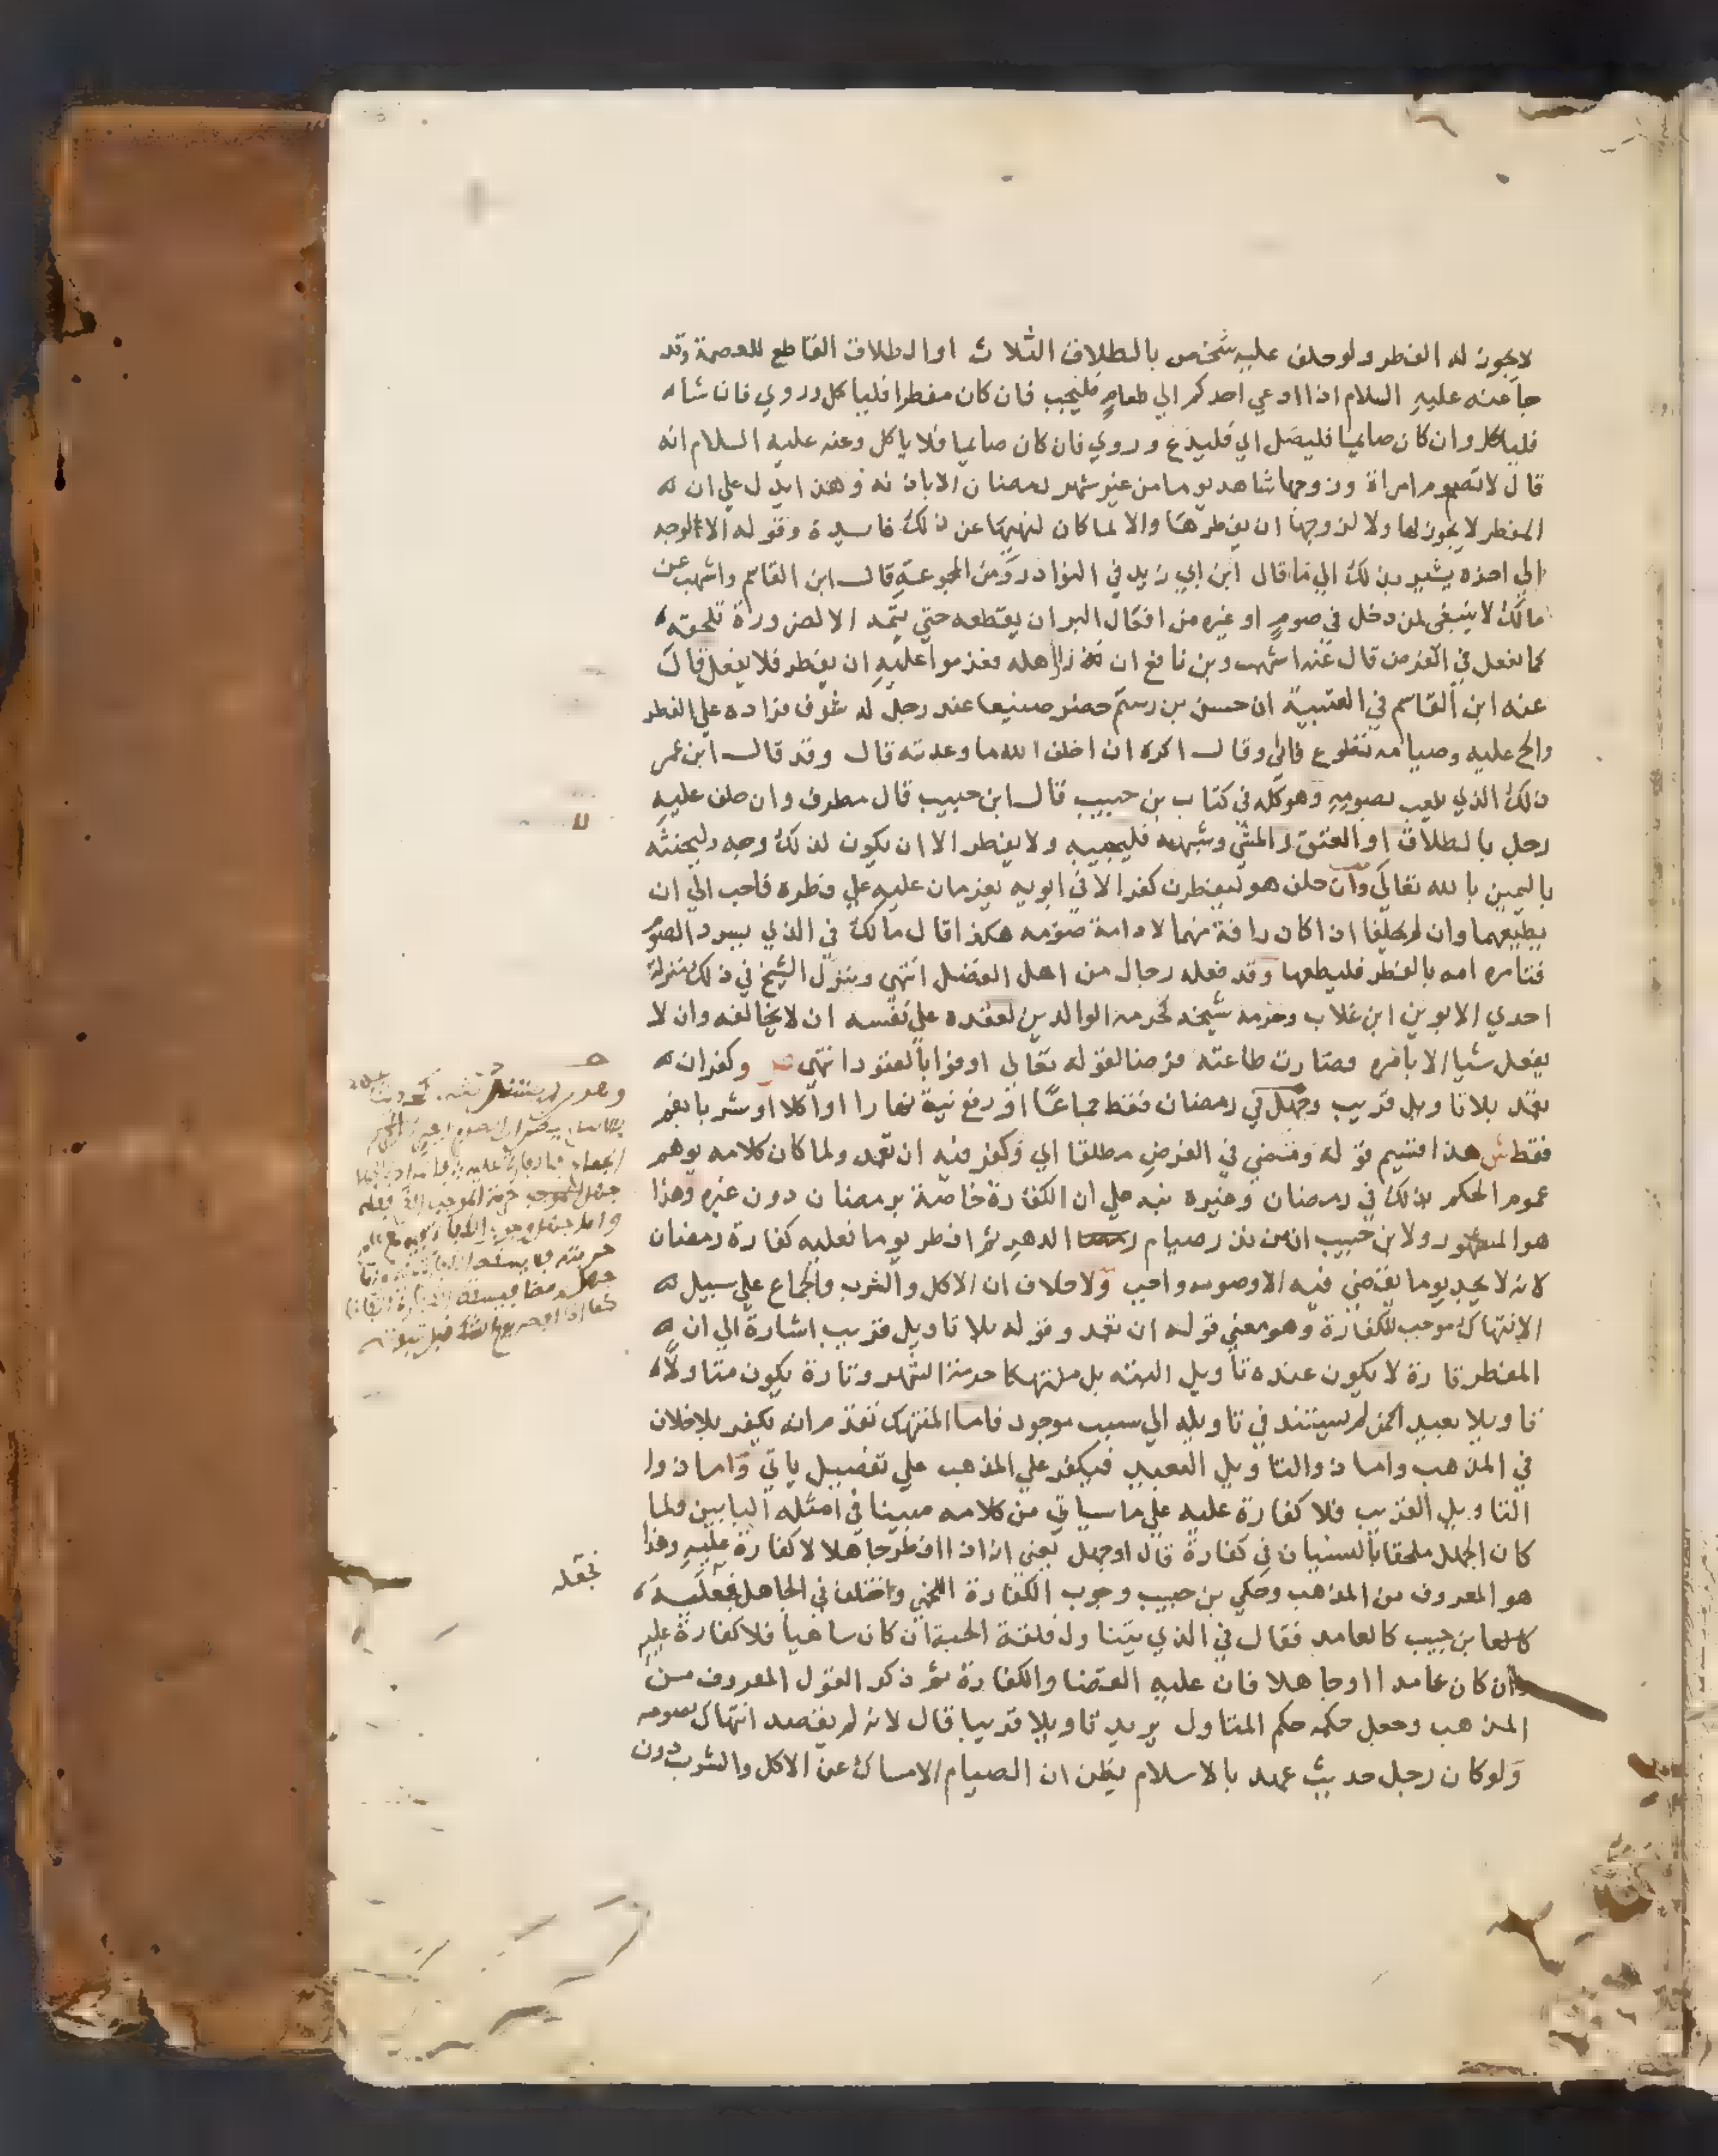 لا يجوز له الفطر ولو حلف عليه شخص بالطلاق الثلاث او الطلاق القاطع للعصمة وقد
جا عنه عليه السلام اذا ادعي احدكم الي طعام فليجب فان كان مفطرا فلياكل وروي فان شاء
فلياكل وان كان صايما فليصل اي فليدع وروي فان كان صايما فلا ياكل وعنه عليه السلام انه
قال لا تصوم امراة وزوجها شاهد يوما من غير شهر رمضان الا باذنه وهذا يدل علي ان
المفطر لا يجوز لها ولا لزوجها ان يفطرها والا لما كان لنهيها عن ذلك فايدة وقوله الا لوجه
الي اخره يشير بذلك الي ما قال ابن ابي زيد في النوادر ومن المجموعة قال ابن القاسم واشهب عن
مالك لا ينبغي لمن دخل في صوم او غيره من افعال البر ان يقطعه حتي يتمه الا لضرورة تلحقه
كما يفعل في الفرض قال عنه اشهب وبن نافع ان اهله فعزموا عليه ان يفطر فلا يفعل قال
عنه ابن القاسم في العتبية ان حسن بن رستم حضر صنيعا عند رجل له شرف فراده علي الفطر
والح عليه وصيامه تطوع فابي وقال اكره ان اخلف الله ما وعدته قال وقد قال ابن عمر
ذلك الذي يلعب بصومه وهو كله في كتاب بن حبيب قال ابن حبيب قال مطرف وان حلف عليه
رجل بالطلاق او العتق والمشي وشبهه فليجيبه ولا يفطر الا ان يكون لذلك وجه وليحنثه
باليمين بالله تعالي وان حلف هو ليفطرن كفر الا في ابويه يعزمان عليه علي فطره فاحب الي ان
يطيعهما وان لم يحلفا اذا كان رافة منهما لادامة صومه هكذا قال مالك في الذي يسرد الصوم
فتامره امه بالفطر فليطعها وقد فعله رجال من اهل الفضل انتهي وينزل الشيخ في ذلك منزلة
احدي الابوين ابن غلاب وحرمة شيخه كحرمة الوالدين لعقده علي نفسه ان لا يخالفه وان لا
يفعل شيا الا بامره فصارت طاعته فرضا لقوله تعالي اوفوا بالعقود انتهي ص وكفر ان
تعمد بلا تاويل قريب وجهل في رمضان فقط جماعا او رفع نية نهارا او اكلا او شربا بفم
فقط ش هذا قسيم قوله وقضي في الفرض مطلقا اي وكفر فيه ان تعمد ولما كان كلامه يوهم
عموم الحكم بذلك في رمضان وغيره نبه علي ان الكفارة خاصة برمضان دون غيره وهذا
هو المشهور ولابن حبيب ان من نذر صيام الدهر ثم افطر يوما فعليه كفارة رمضان
لانه لا يجد يوما يقضي فيه الا وصومه واجب ولا خلاف ان الاكل والشرب والجماع علي سبيل
الانتهاك موجب للكفارة وهو معني قوله ان تعمد وقوله بلا تاويل قريب اشارة الي ان
المفطر تارة لا يكون عنده تاويل البتة بل منتهكا حرمة الشهر وتارة يكون متاولا
تاويلا بعيد اكمن لم يستند في تاويله الي سبب موجود فاما المنتهك تقدم انه يكفر بلا خلاف
في المذهب واما ذو التاويل البعيد فيكفر علي المذهب علي تفصيل ياتي واما ذوا
التاويل القريب فلا كفارة عليه علي ما سياتي من كلامه مبينا في امثله البابين ولما
كان الجهل ملحقا بالنسيان في كفارة قال او جهل يعني ان اذا افطر جاهلا لا كفارة عليه وهذا
هو المعروف من المذهب وحكي بن حبيب وجوب الكفارة اللخمي واختلف في الجاهل
ابن حبيب كالعامد فقال في الذي يتناول فلقة الحبة ان كان ساهيا فلا كفارة عليه
وان كان عامدا او جاهلا فان عليه القضا والكفارة ثم ذكر القول المعروف من
المذهب وجعل حكمه حكم المتاول يريد تاويلا قريبا قال لانه لم يقصد انتهاك صومه
ولو كان رجل حديث عهد بالاسلام يظن ان الصيام الامساك عن الاكل والشرب دون
فجعله